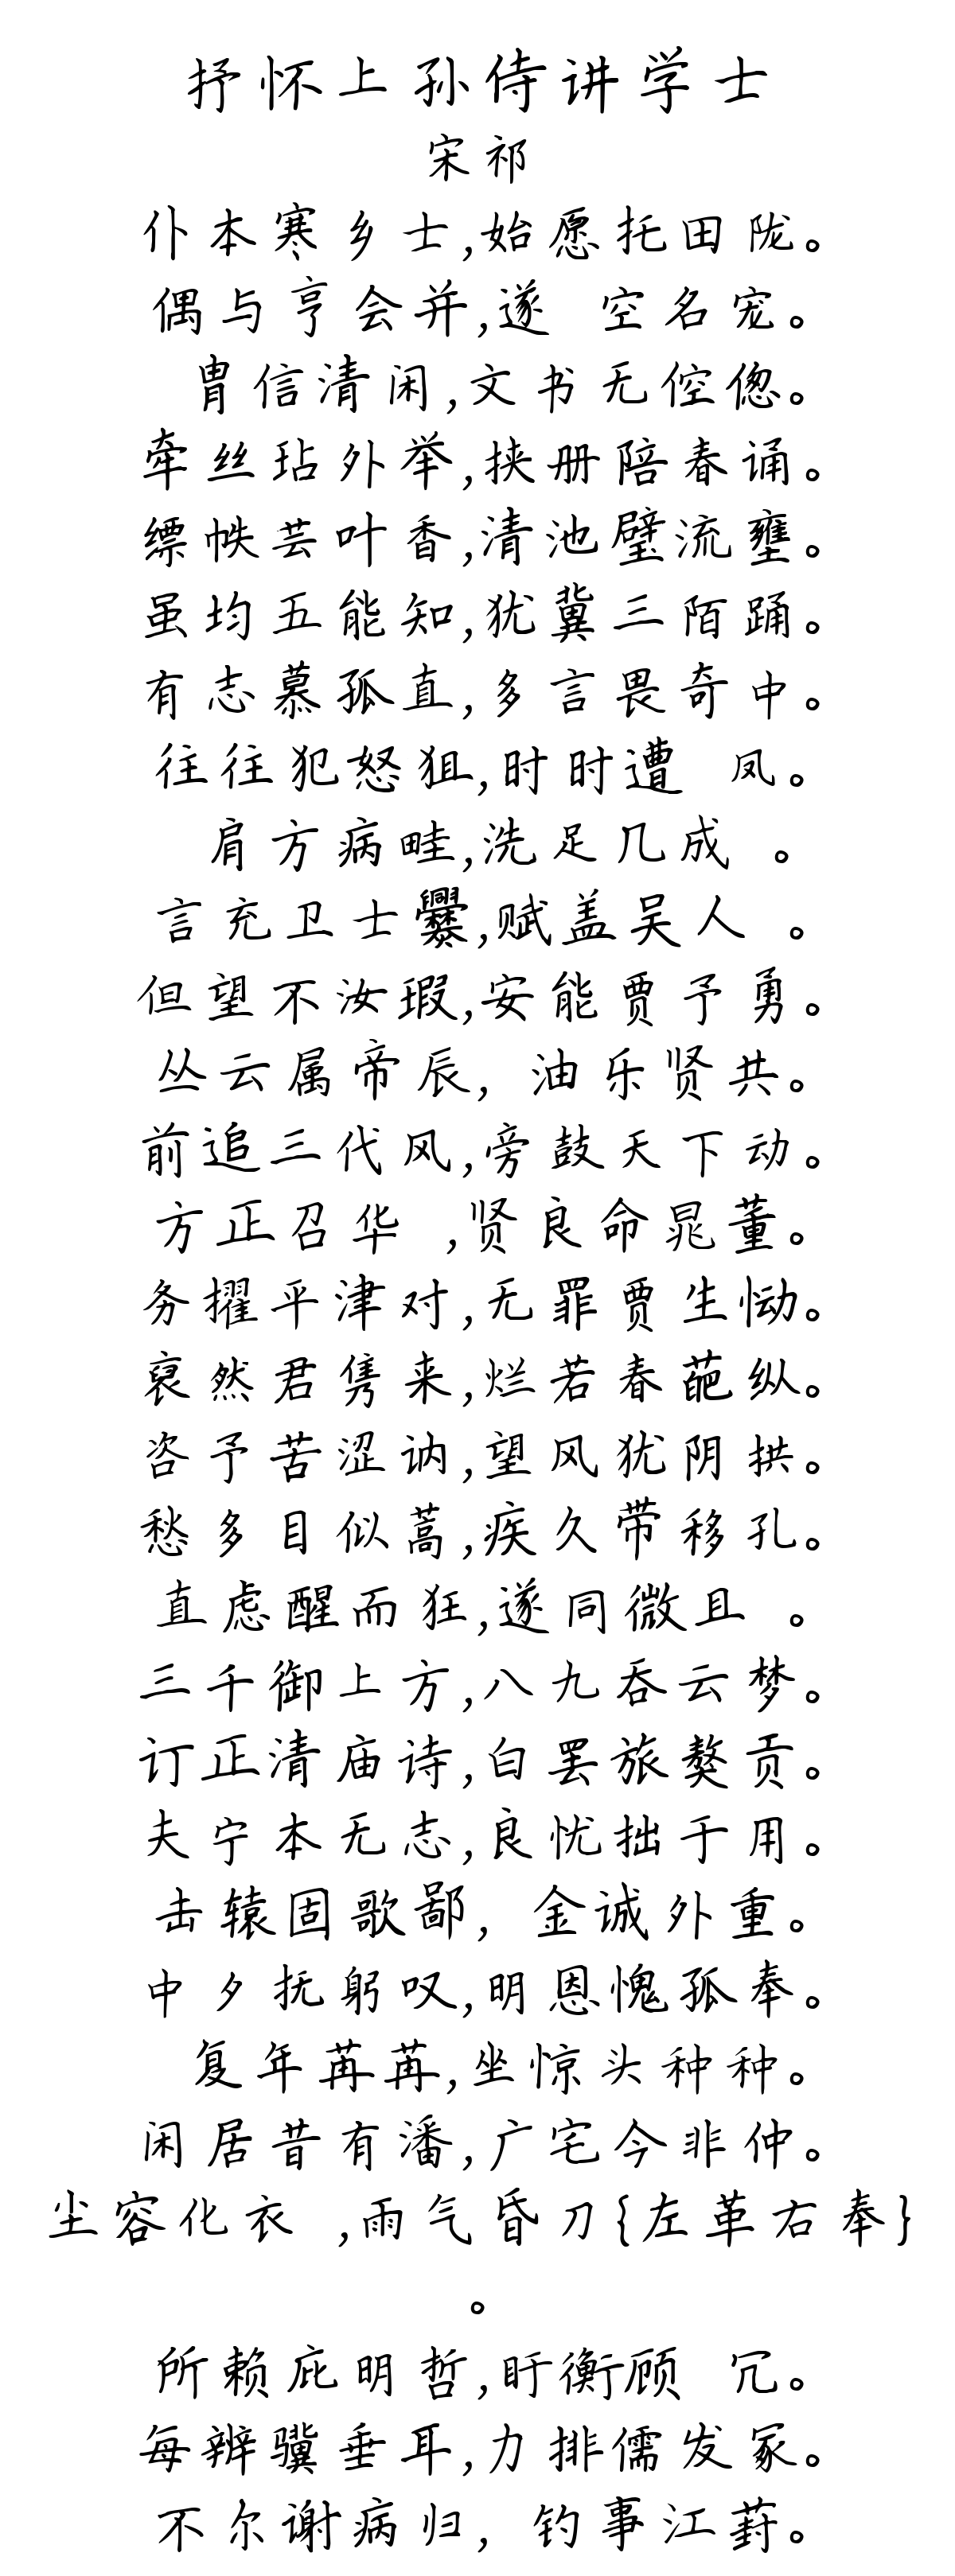 抒怀上孙侍讲学士
宋祁
仆本寒乡士,始愿托田陇。
偶与亨会并,遂 空名宠。
胄信清闲,文书无倥偬。
牵丝玷外举,挟册陪春诵。
缥帙芸叶香,清池璧流壅。
虽均五能知,犹冀三陌踊。
有志慕孤直,多言畏奇中。
往往犯怒狙,时时遭 凤。
肩方病畦,洗足几成 。
言充卫士爨,赋盖吴人 。
但望不汝瑕,安能贾予勇。
丛云属帝辰, 油乐贤共。
前追三代风,旁鼓天下动。
方正召华 ,贤良命晁董。
务擢平津对,无罪贾生恸。
裒然君隽来,烂若春葩纵。
咨予苦涩讷,望风犹阴拱。
愁多目似蒿,疾久带移孔。
直虑醒而狂,遂同微且 。
三千御上方,八九吞云梦。
订正清庙诗,白罢旅獒贡。
夫宁本无志,良忧拙于用。
击辕固歌鄙, 金诚外重。
中夕抚躬叹,明恩愧孤奉。
复年苒苒,坐惊头种种。
闲居昔有潘,广宅今非仲。
尘容化衣 ,雨气昏刀{左革右奉}
。
所赖庇明哲,盱衡顾 冗。
每辨骥垂耳,力排儒发冢。
不尔谢病归, 钓事江葑。